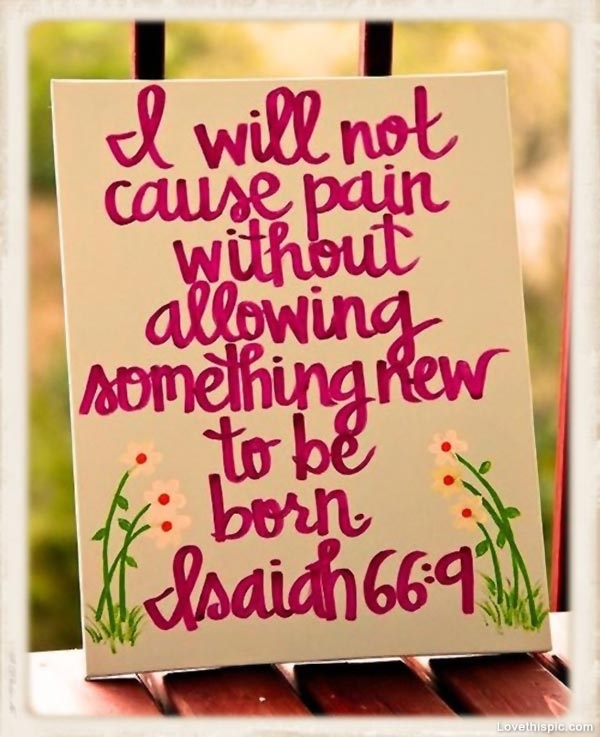 I will not
cause pain
without
allowing
something new
to be
born.
Isaiah 66:9
Lovethispic.com